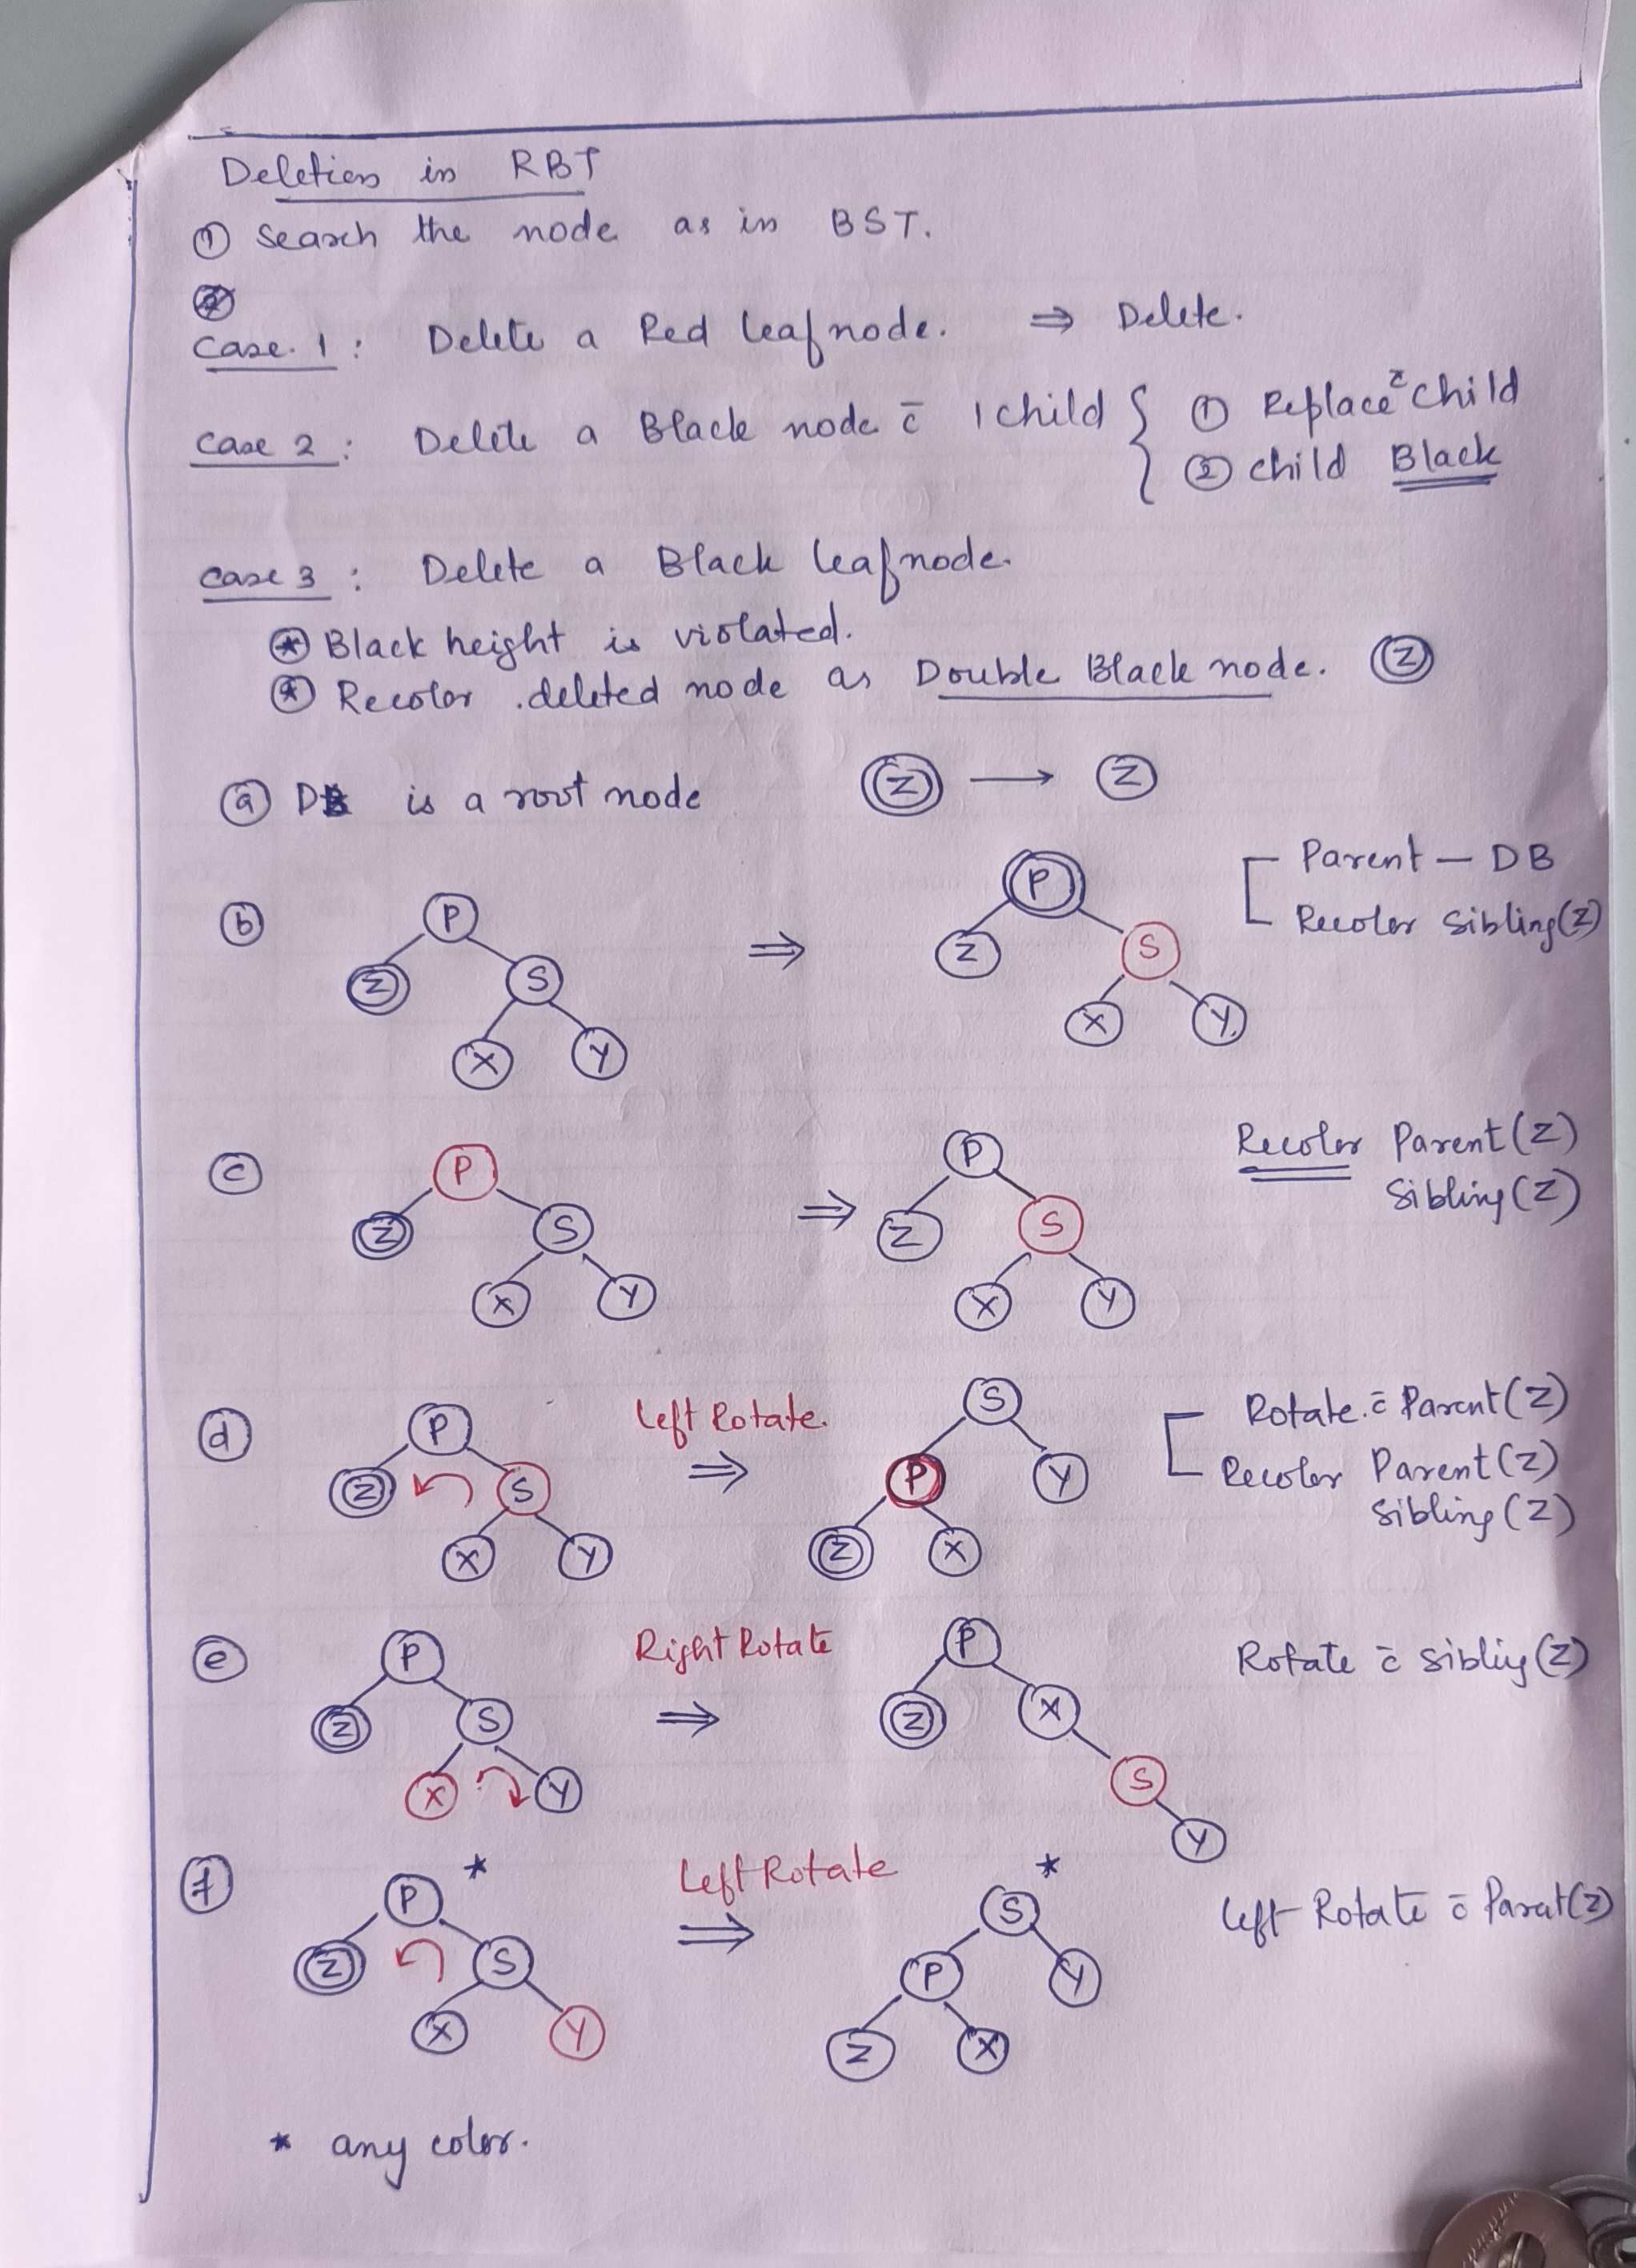 Deletion in RBT
① Search the node as in BST.
②
Case 1 : Delete a Red leaf node. ⇒ Delete.
Case 2 : Delete a Black node c̄ 1 child { ① Replace c̄ child
② child Black
Case 3 : Delete a Black leaf node.
⊛ Black height is violated.
⊛ Recolor deleted node as Double Black node. Z
ⓐ DB is a root node Z → Z
ⓑ P Z S X Y ⇒ P Z S X Y
Parent – DB
Recolor Sibling(Z)
ⓒ P Z S X Y ⇒ P Z S X Y
Recolor Parent(Z)
Sibling(Z)
ⓓ P Z S X Y Left Rotate. ⇒ S P Y Z X
Rotate c̄ Parent(Z)
Recolor Parent(Z)
Sibling(Z)
ⓔ P Z S X Y Right Rotate ⇒ P Z X S Y
Rotate c̄ Sibliy(Z)
ⓕ P * Z S X Y Left Rotate ⇒ S * P Y Z X
Left Rotate c̄ Parat(Z)
* any color.